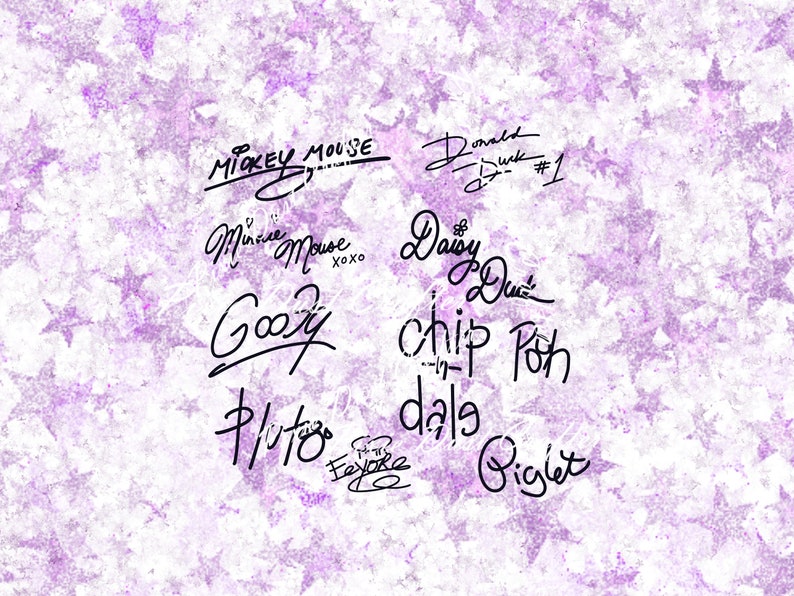 Mickey Mouse
Donald
Duck #1
Minnie Mouse
xoxo
Daisy
Duck
Goofy
chip
Pooh
dale
Pluto
Eeyore
Piglet